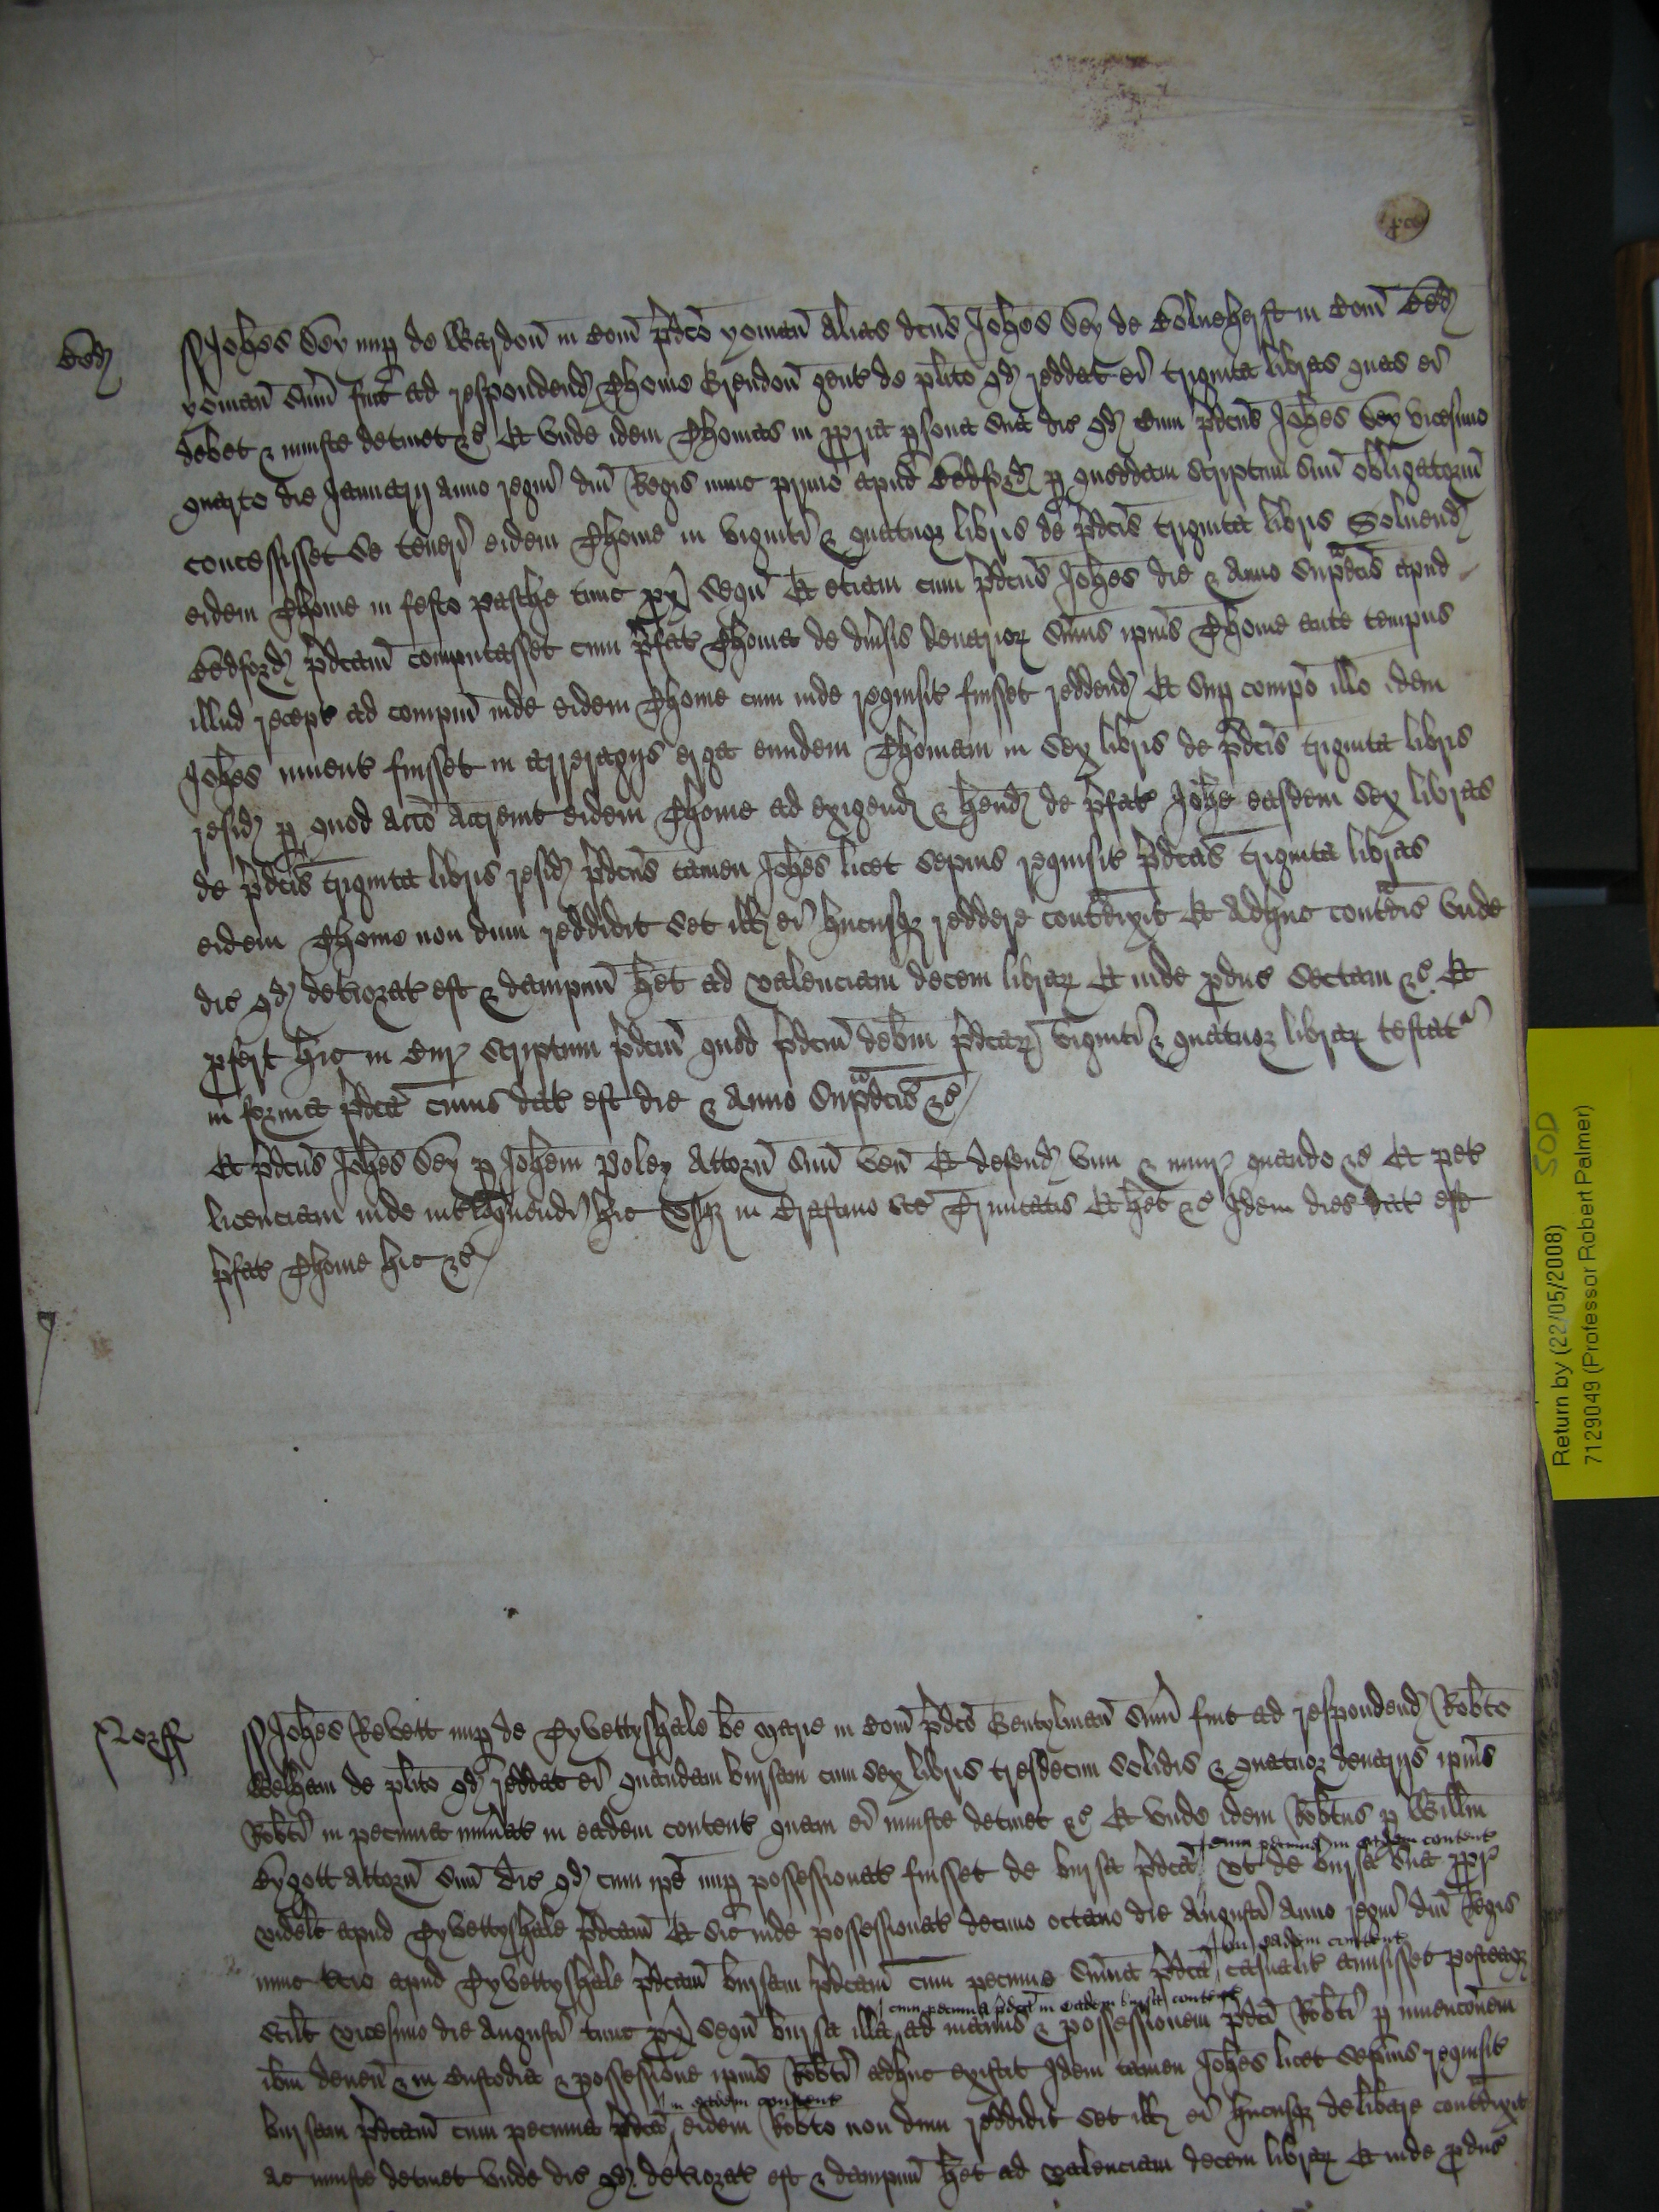 Bed
Johes Sey nup de Wardon in Com pdco yoman alias dcus Johes Sey de Colneherst in Com Bed
yoman sum fuit ad respondend Thome Brendon gent de plito qd reddat ei triginta libras quas ei
debet & iniuste detinet &c Et unde idem Thomas in ppria psona sua dic qd cum pdcus Johes Sey vicesimo
quarto die Januarij anno regni dni Regis nunc primo apud Bedford p quoddam scriptum suu obligatoriu
concessisset se teneri eidem Thome in viginti & quatuor libris de pdcis triginta libris Solvend
eidem Thome in festo pasche tunc px sequ Et etiam cum pdcus Johes die & anno supadcis apud
Bedford pdcam computasset cum pfat Thoma de divsis denarior sumis ipius Thome ante tempus
illud recept ad compum inde eidem Thome cum inde requisit fuisset reddend Et sup compo illo idem
Johes invent fuisset in arreragijs erga eundem Thomam in sex libris de pdcis triginta libris
resid p quod acco accrevit eidem Thome ad exigend & hend de pfat Johe easdem sex libras
de pdcis triginta libris resid pdcus tamen Johes licet sepius requisit pdcas triginta libras
eidem Thome non dum reddidit set ill ei hucusq reddere contradixit Et adhuc contradic unde
dic qd deteriorat est & dampnu het ad valenciam decem librar Et inde pduc sectam &c Et
pfert hic in Cur scriptum pdcm quod pdcm debm pdcar viginti & quatuor librar testatr
in forma pdca cuius dat est die & anno supadcis &c
Et pdcus Johes Sey p Johem Poley attorn suu ven Et defend vim & iniur quando &c Et pet
licenciam inde intloquendi hic usq in Crastino sce Trinitatis Et het &c Idem dies dat est
pfat Thome hic &c
Norff
Johes Revett nup de Tyvettyshale be Marie in Com pdco Gentylman sum fuit ad respondend Robto
Welham de plito qd reddat ei quandam bursam cum sex libris tresdecim solidis & quatuor denarijs ipius
Robti in pecunia numat in eadem content quam ei iniuste detinet &c Et unde idem Robtus p Willm
cum pecunia in eadem content
Bygott attorn suu dic qd cum ipe nup possessionat fuisset de bursa pdca ut de bursa sua ppr
videlt apud Tyvettyshale pdcam Et sic inde possessionat decimo octavo die Augusti anno regni dni Regis
in eadem content
nunc tcio apud Tyvettyshale pdcam bursam pdcam cum pecunie suma pdca casualit amisisset posteaq
cum pecunia pdca in eadem bursa content
scilt vicesimo die Augusti tunc px sequ bursa illa ad manus & possessionem pdci Robti p invenconem
ibm deven & in custodia & possessione ipius Robti adhuc existat Idem tamen Johes licet sepius requisit
in eadem content
bursam pdcam cum pecunia pdca eidem Robto non dum reddidit set ill ei hucusq delibare contradixit
ac iniuste detinet unde dic qd deteriorat est & dampnu het ad valenciam decem librar Et inde pduc
SOD
Return by (22/05/2008)
7129049 (Professor Robert Palmer)